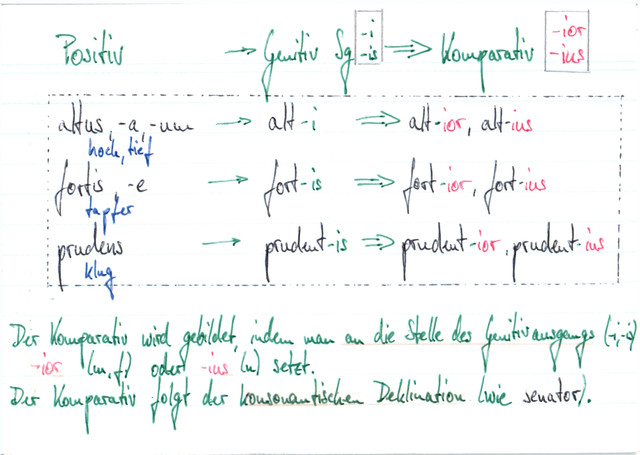 Positiv → Genitiv Sg -i -is ⇒ Komparativ -ior -ius
altus, -a, -um → alt-i ⇒ alt-ior, alt-ius
hoch, tief
fortis, -e → fort-is ⇒ fort-ior, fort-ius
tapfer
prudens → prudent-is ⇒ prudent-ior, prudent-ius
klug
Der Komparativ wird gebildet, indem man an die Stelle des Genitivausgangs (-i, -is)
-ior (m, f) oder -ius (n) setzt.
Der Komparativ folgt der konsonantischen Deklination (wie senator).